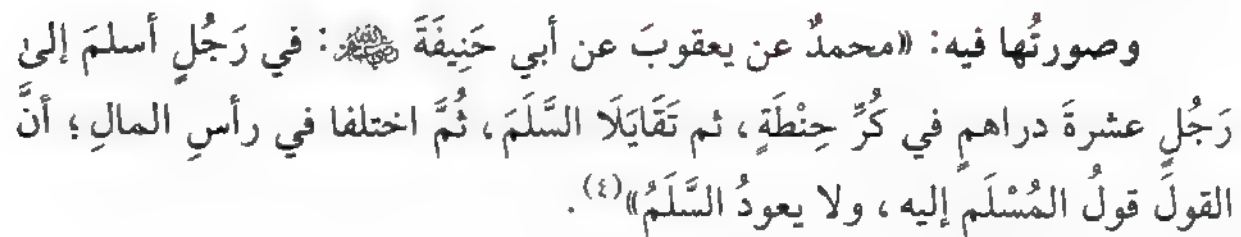 وصورتُها فيه: «محمدٌ عن يعقوبَ عن أبي حَنِيفَةَ ﵁: في رَجُلٍ أسلمَ إلىٰ
رَجُلٍ عشرةَ دراهمٍ في كُرِّ حِنْطَةٍ، ثم تَقَايَلَا السَّلَمَ، ثُمَّ اختلفا في رأسِ المالِ؛ أنَّ
القولَ قولُ المُسْلَمِ إليه، ولا يعودُ السَّلَمُ»(٤).